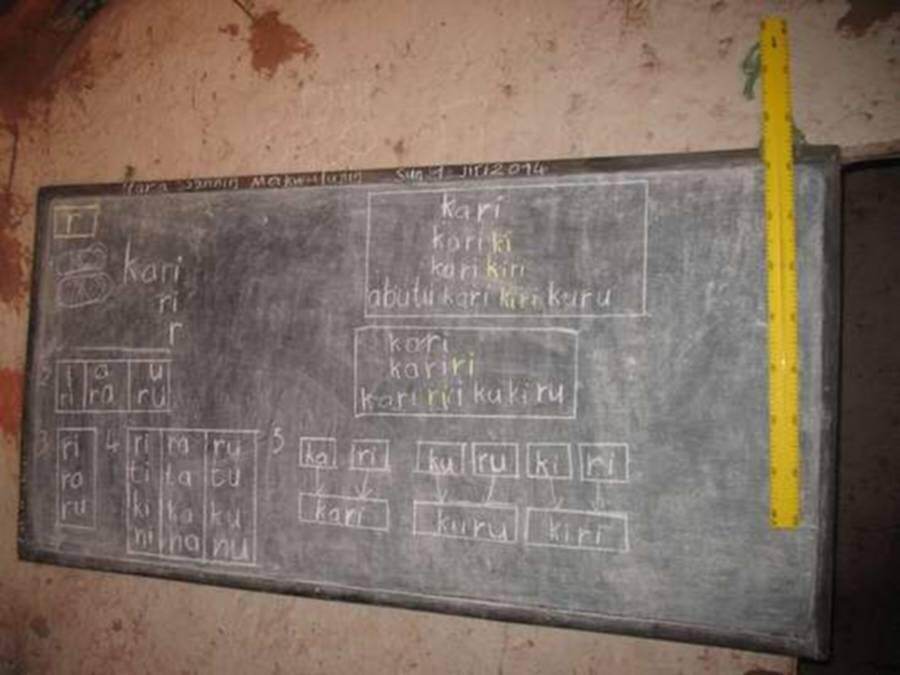 Sun 1 Jiri 2014
r
kari
ri
r
kari
kari ki
kari kiri
abutu kari kiri kuru
kari
kari ri
kari riri kukiru
2
i a u
ri ra ru
3
ri
ra
ru
4
ri ra ru
ti ta tu
ki ka ku
ni na nu
5
ka ri ku ru ki ri
kari kuru kiri